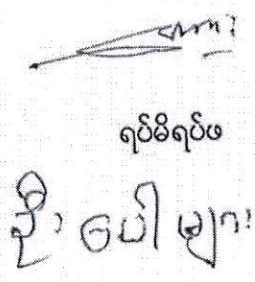 ရပ်မိရပ်ဖ
ဦး ပေါ များ